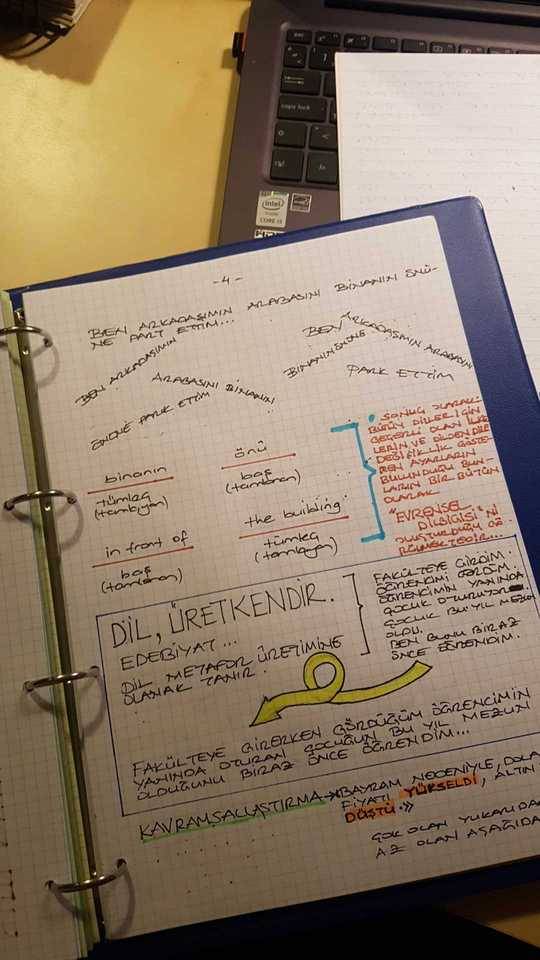 caps lock
intel
CORE i5
- 4 -
BEN ARKADAŞIMIN ARABASINI BİNANIN ÖNÜ-
NE PART ETTİM...
BEN ARKADAŞIMIN
ARABASINI BİNANIN
ÖNÜNE PARK ETTİM
BEN ARKADAŞIMIN ARABASINI
BİNANIN ÖNÜNE
PARK ETTİM
binanın
tümleç
(tamlayan)
önü
baş
(tamlanan)
in front of
baş
(tamlanan)
the building
tümleç
(tamlayan)
SONUÇ OLARAK
BÜTÜN DİLLER İÇİN
GEÇERLİ OLAN İLKE-
LERİN VE DİLDEN DİLE
DEĞİŞİKLİK GÖSTE-
REN AYARLARIN
BULUNDUĞU BUN-
LARIN BİR BÜTÜN
OLARAK
"EVRENSEL
DİLBİLGİSİ"Nİ
OLUŞTURDUĞU
DİL, ÜRETKENDİR.
EDEBİYAT...
DİL METAFOR ÜRETİMİNE
OLANAK TANIR.
FAKÜLTEYE GİRDİM.
ÖĞRENCİMİ GÖRDÜM.
ÖĞRENCİMİN YANINDA
ÇOCUK OTURUYOR
ÇOCUK BU YIL MEZUN
OLDU.
BEN BUNU BİRAZ
ÖNCE ÖĞRENDİM.
FAKÜLTEYE GİRERKEN GÖRDÜĞÜM ÖĞRENCİMİN
YANINDA OTURAN ÇOCUĞUN BU YIL MEZUN
OLDUĞUNU BİRAZ ÖNCE ÖĞRENDİM...
KAVRAMSALLAŞTIRMA → BAYRAM NEDENİYLE, DOLA
FİYATI YÜKSELDİ, ALTIN
DÜŞTÜ.»
ÇOK OLAN YUKARIDA
AZ OLAN AŞAĞIDA